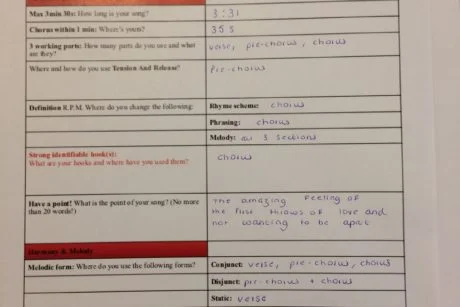 Max 3min 30s: How long is your song? 3:31
Chorus within 1 min: Where's yours? 35s
3 working parts: How many parts do you use and what are they? verse, pre-chorus, chorus
Where and how do you use Tension And Release? Pre-chorus
Definition R.P.M. Where do you change the following: Rhyme scheme: chorus
Phrasing: chorus
Melody: all 3 sections
Strong identifiable hook(s): chorus
What are your hooks and where have you used them?
Have a point! What is the point of your song? (No more than 20 words!)
The amazing feeling of
the first throws of love and
not wanting to be apart
Harmony & Melody
Melodic form: Where do you use the following forms? Conjunct: verse, pre-chorus, chorus
Disjunct: pre-chorus + chorus
Static: verse